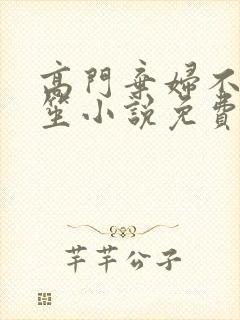 高門棄婦不
笙小說免費
芊芊公子